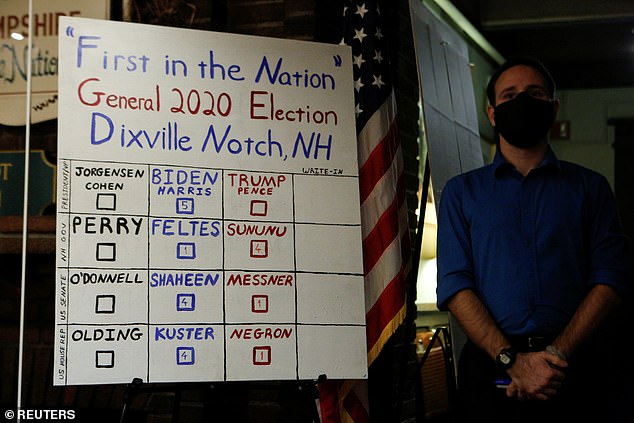 MPSHIRE
"First in the Nation"
General 2020 Election
Dixville Notch, NH
WRITE-IN
PRESIDENT/VP
JORGENSEN BIDEN TRUMP
COHEN HARRIS PENCE
5
NH GOV
PERRY FELTES SUNUNU
1 4
US SENATE
O'DONNELL SHAHEEN MESSNER
4 1
US HOUSE REP
OLDING KUSTER NEGRON
4 1
© REUTERS